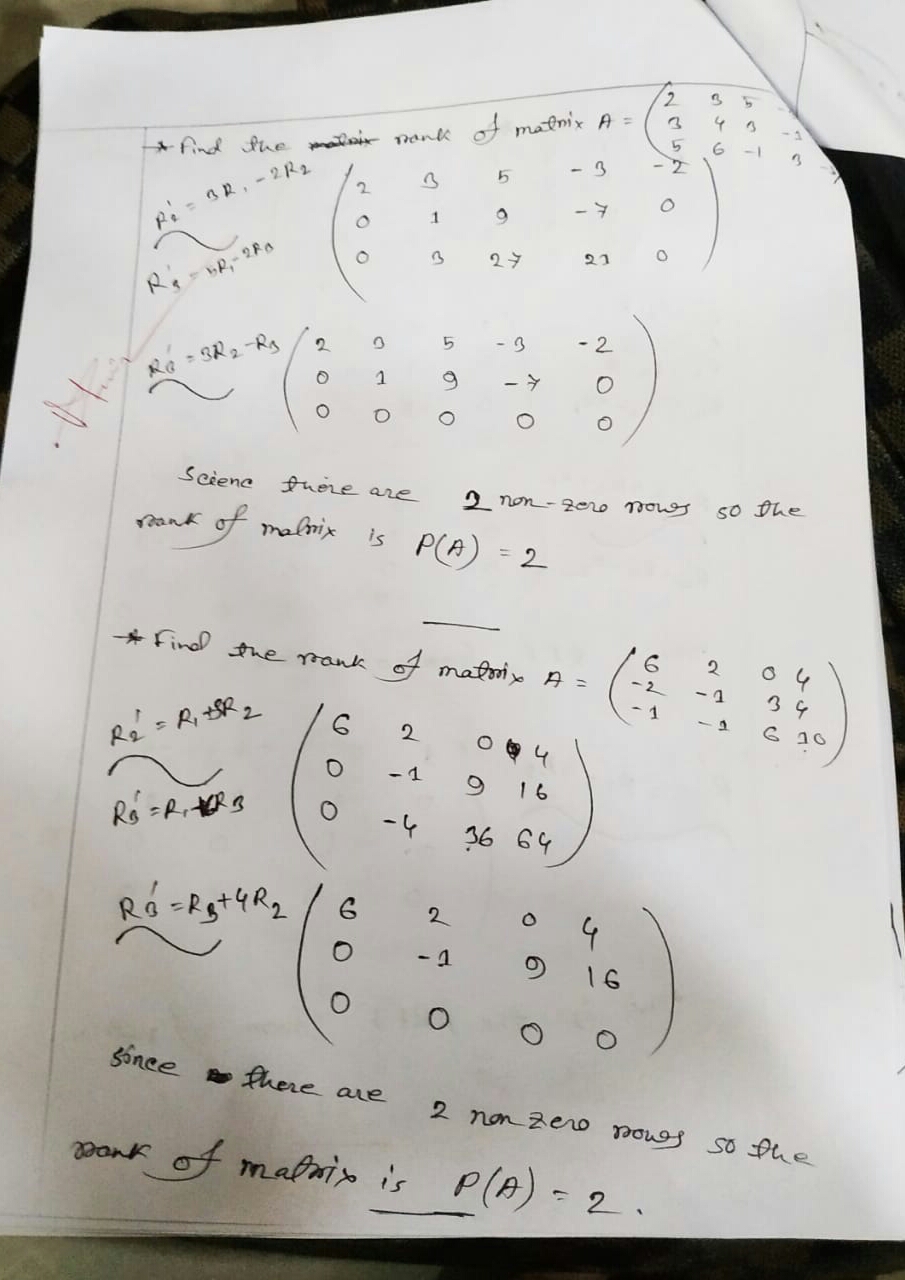 * Find the rank of matrix A = (2 3 5
3 4 3 -1
5 6 -1 3
R2' = 3R1 - 2R2
R3' = 5R1 - 2R3
2 3 5 -3 -2
0 1 9 -7 0
0 3 27 21 0
R3' = 3R2 - R3
2 3 5 -3 -2
0 1 9 -7 0
0 0 0 0 0
Scienc there are 2 non-zero rows so the
rank of matrix is P(A) = 2
* Find the rank of matrix A = (6 2 0 4
-2 -1 3 4
-1 -1 6 10)
R2' = R1 + 3R2
R3' = R1 + 6R3
6 2 0 4
0 -1 9 16
0 -4 36 64
R3' = R3 + 4R2
6 2 0 4
0 -1 9 16
0 0 0 0
Since there are 2 non zero rows so the
rank of matrix is P(A) = 2.